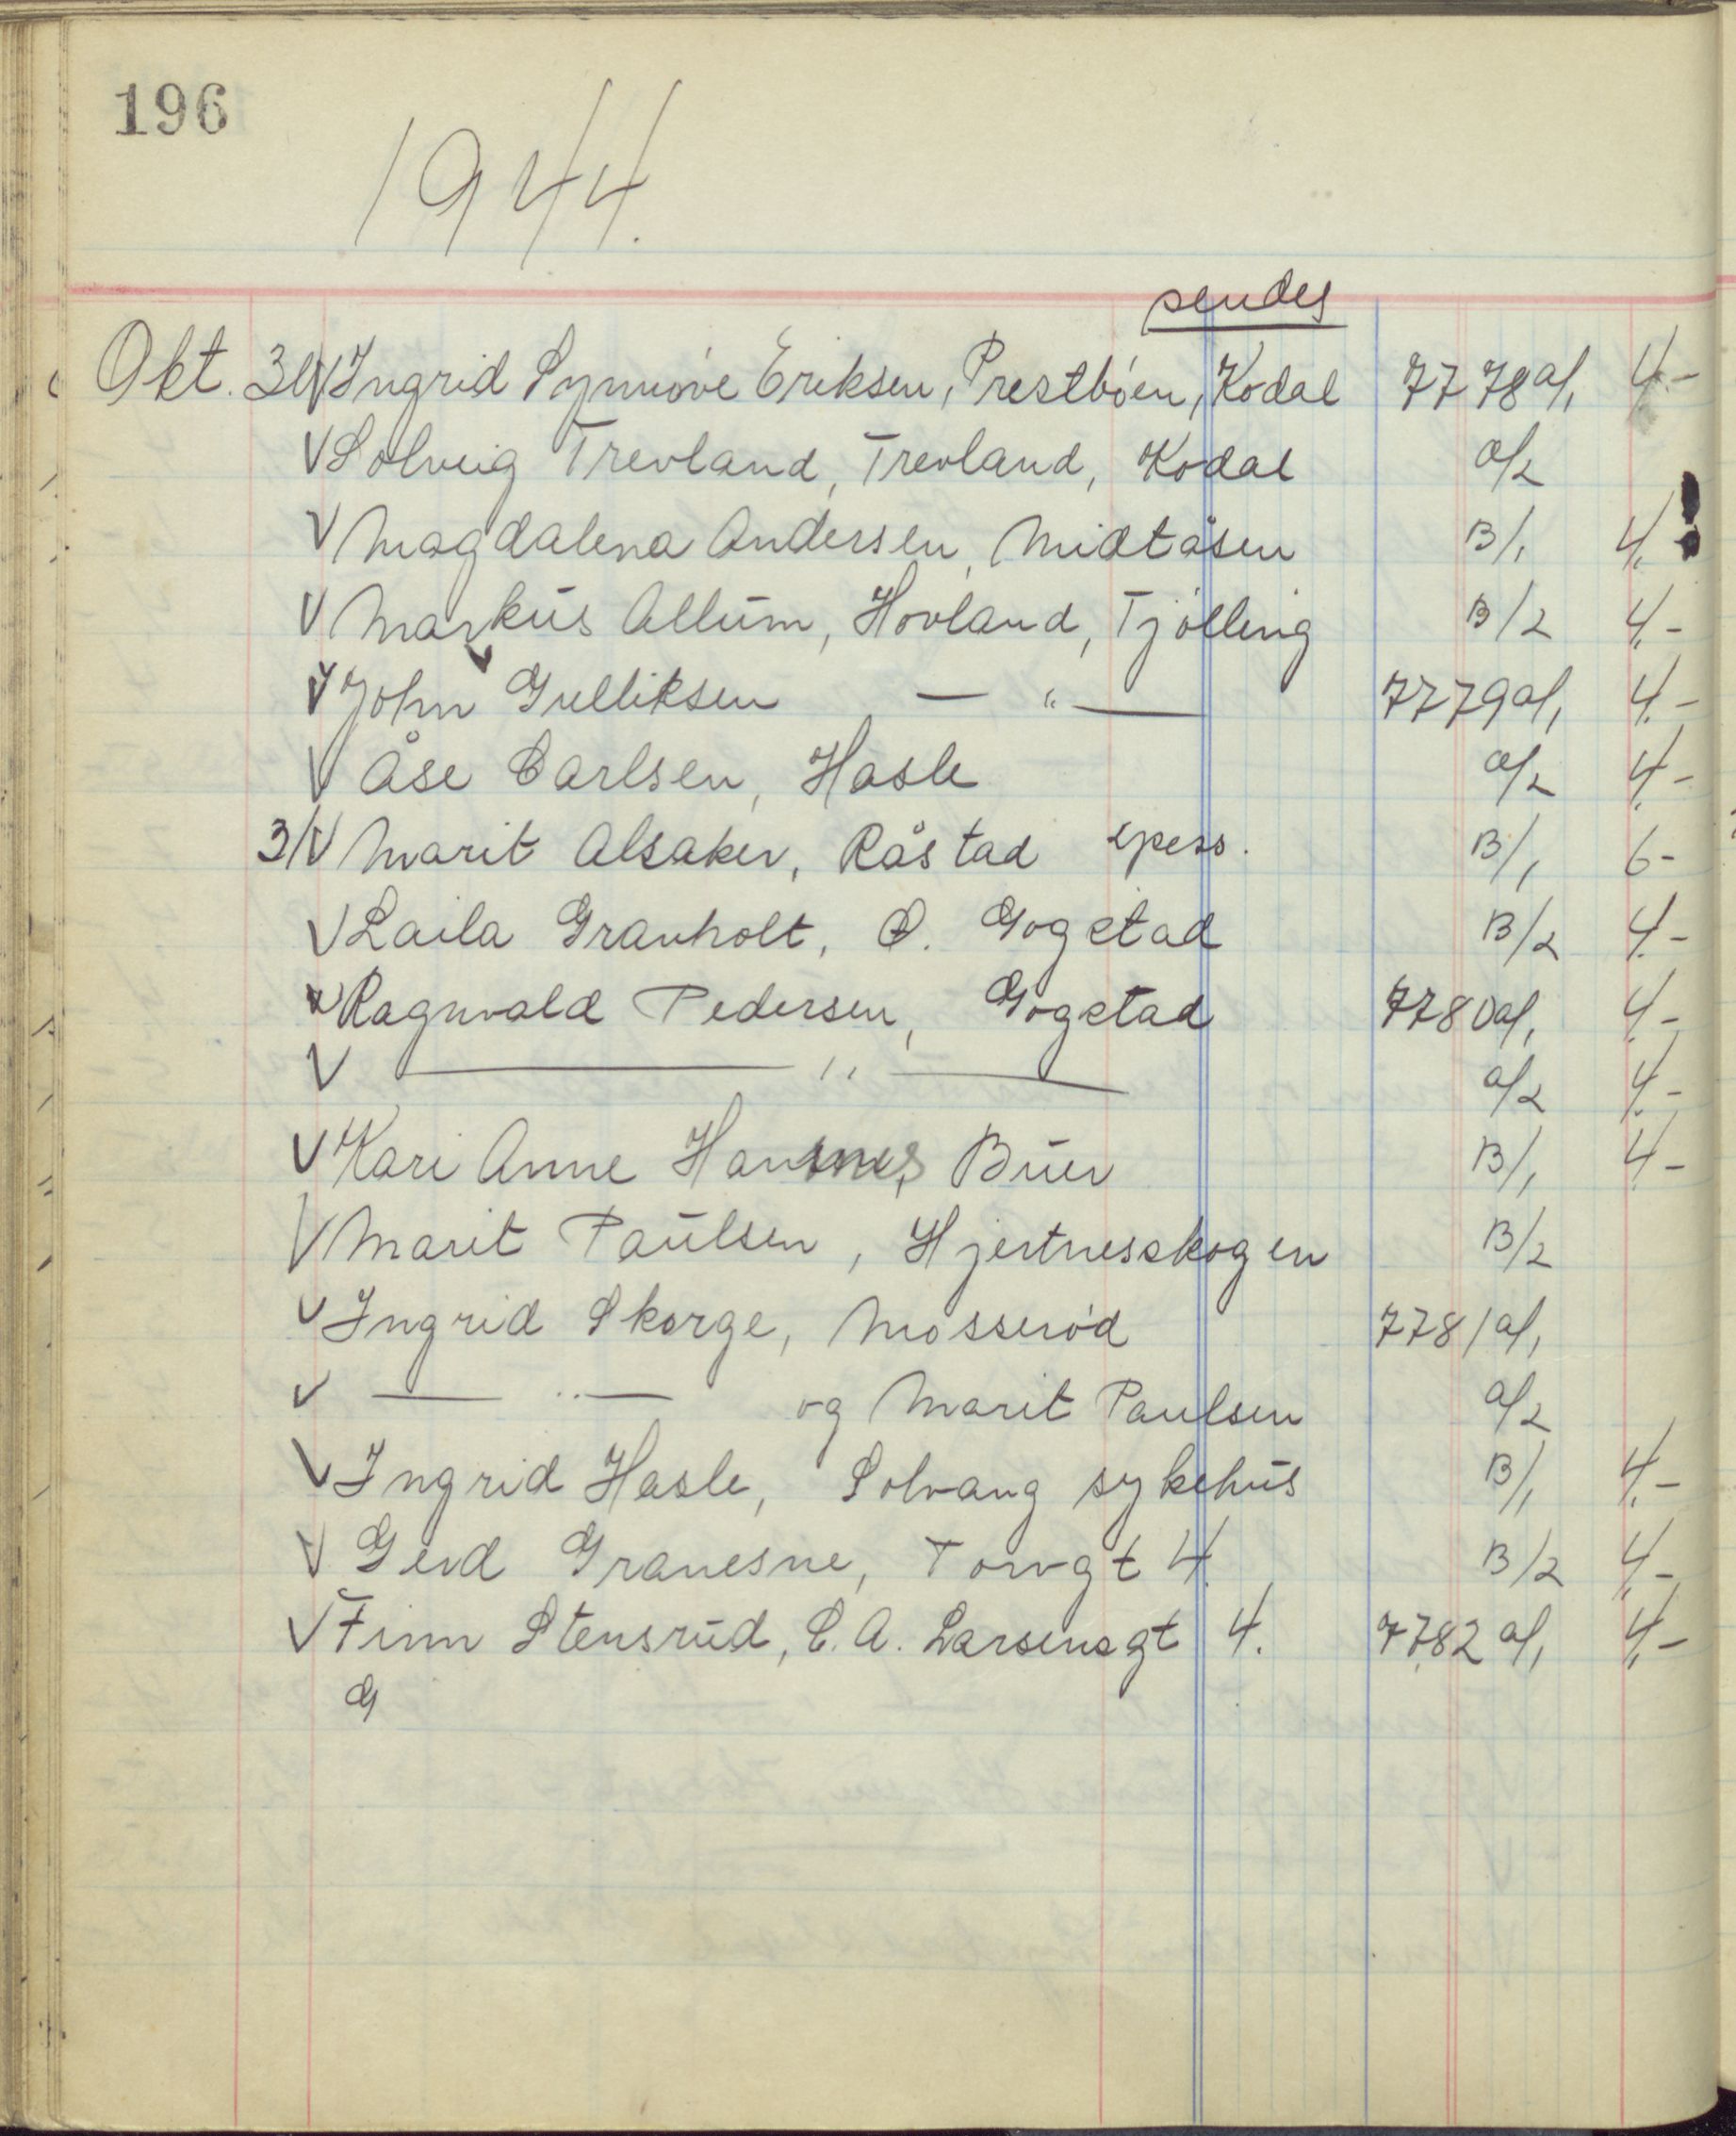 196
1944.
sendes
Okt. 30 V Ingrid Synnöve Eriksen, Prestböen, Kodal 7778 a/1 4-
V Solveig Trevland, Trevland, Kodal a/2
V Magdalena Andersen, Midtåsen B/1 4.-
V Markus Allum, Hovland, Tjölling B/2 4.-
V John Gulliksen — " — 7779 a/1 4.-
V Åse Carlsen, Hasle a/2 4.-
31 V Marit Alsaker, Råstad spess. B/1 6-
V Laila Granholt, Ö. Gogstad B/2 4.-
V Ragnvald Pedersen, Gogstad 7780 a/1 4.-
V — " — a/2 4.-
V Kari Anne Buer B/1 4.-
V Marit Paulsen, Hjertnesskogen B/2
V Ingrid Skorge, Mosseröd 7781 a/1
V — " — og Marit Paulsen a/2
V Ingrid Hasle, Solvang sykehus B/1 4.-
V Gerd Granesne, Torvgt 4. B/2 4.-
V Finn Stensrud, C. A. Larsensgt 4. 7782 a/1 4.-
G